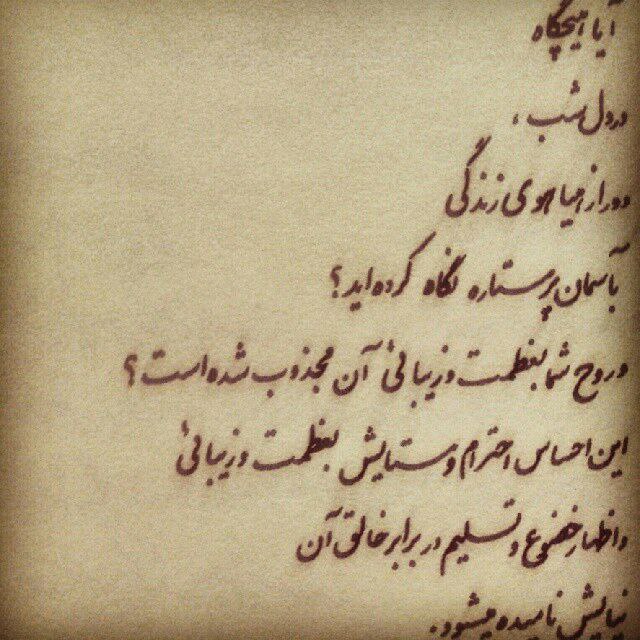 آیا هیچگاه
در دل شب ،
دور از هیاهوی زندگی
بآسمان پرستاره نگاه کرده‌اید؟
و روح شما بعظمت و زیبائی آن مجذوب شده است؟
این احساس احترام و ستایش بعظمت و زیبائی
و اظهار خضوع و تسلیم در برابر خالق آن
نیایش نامیده میشود.